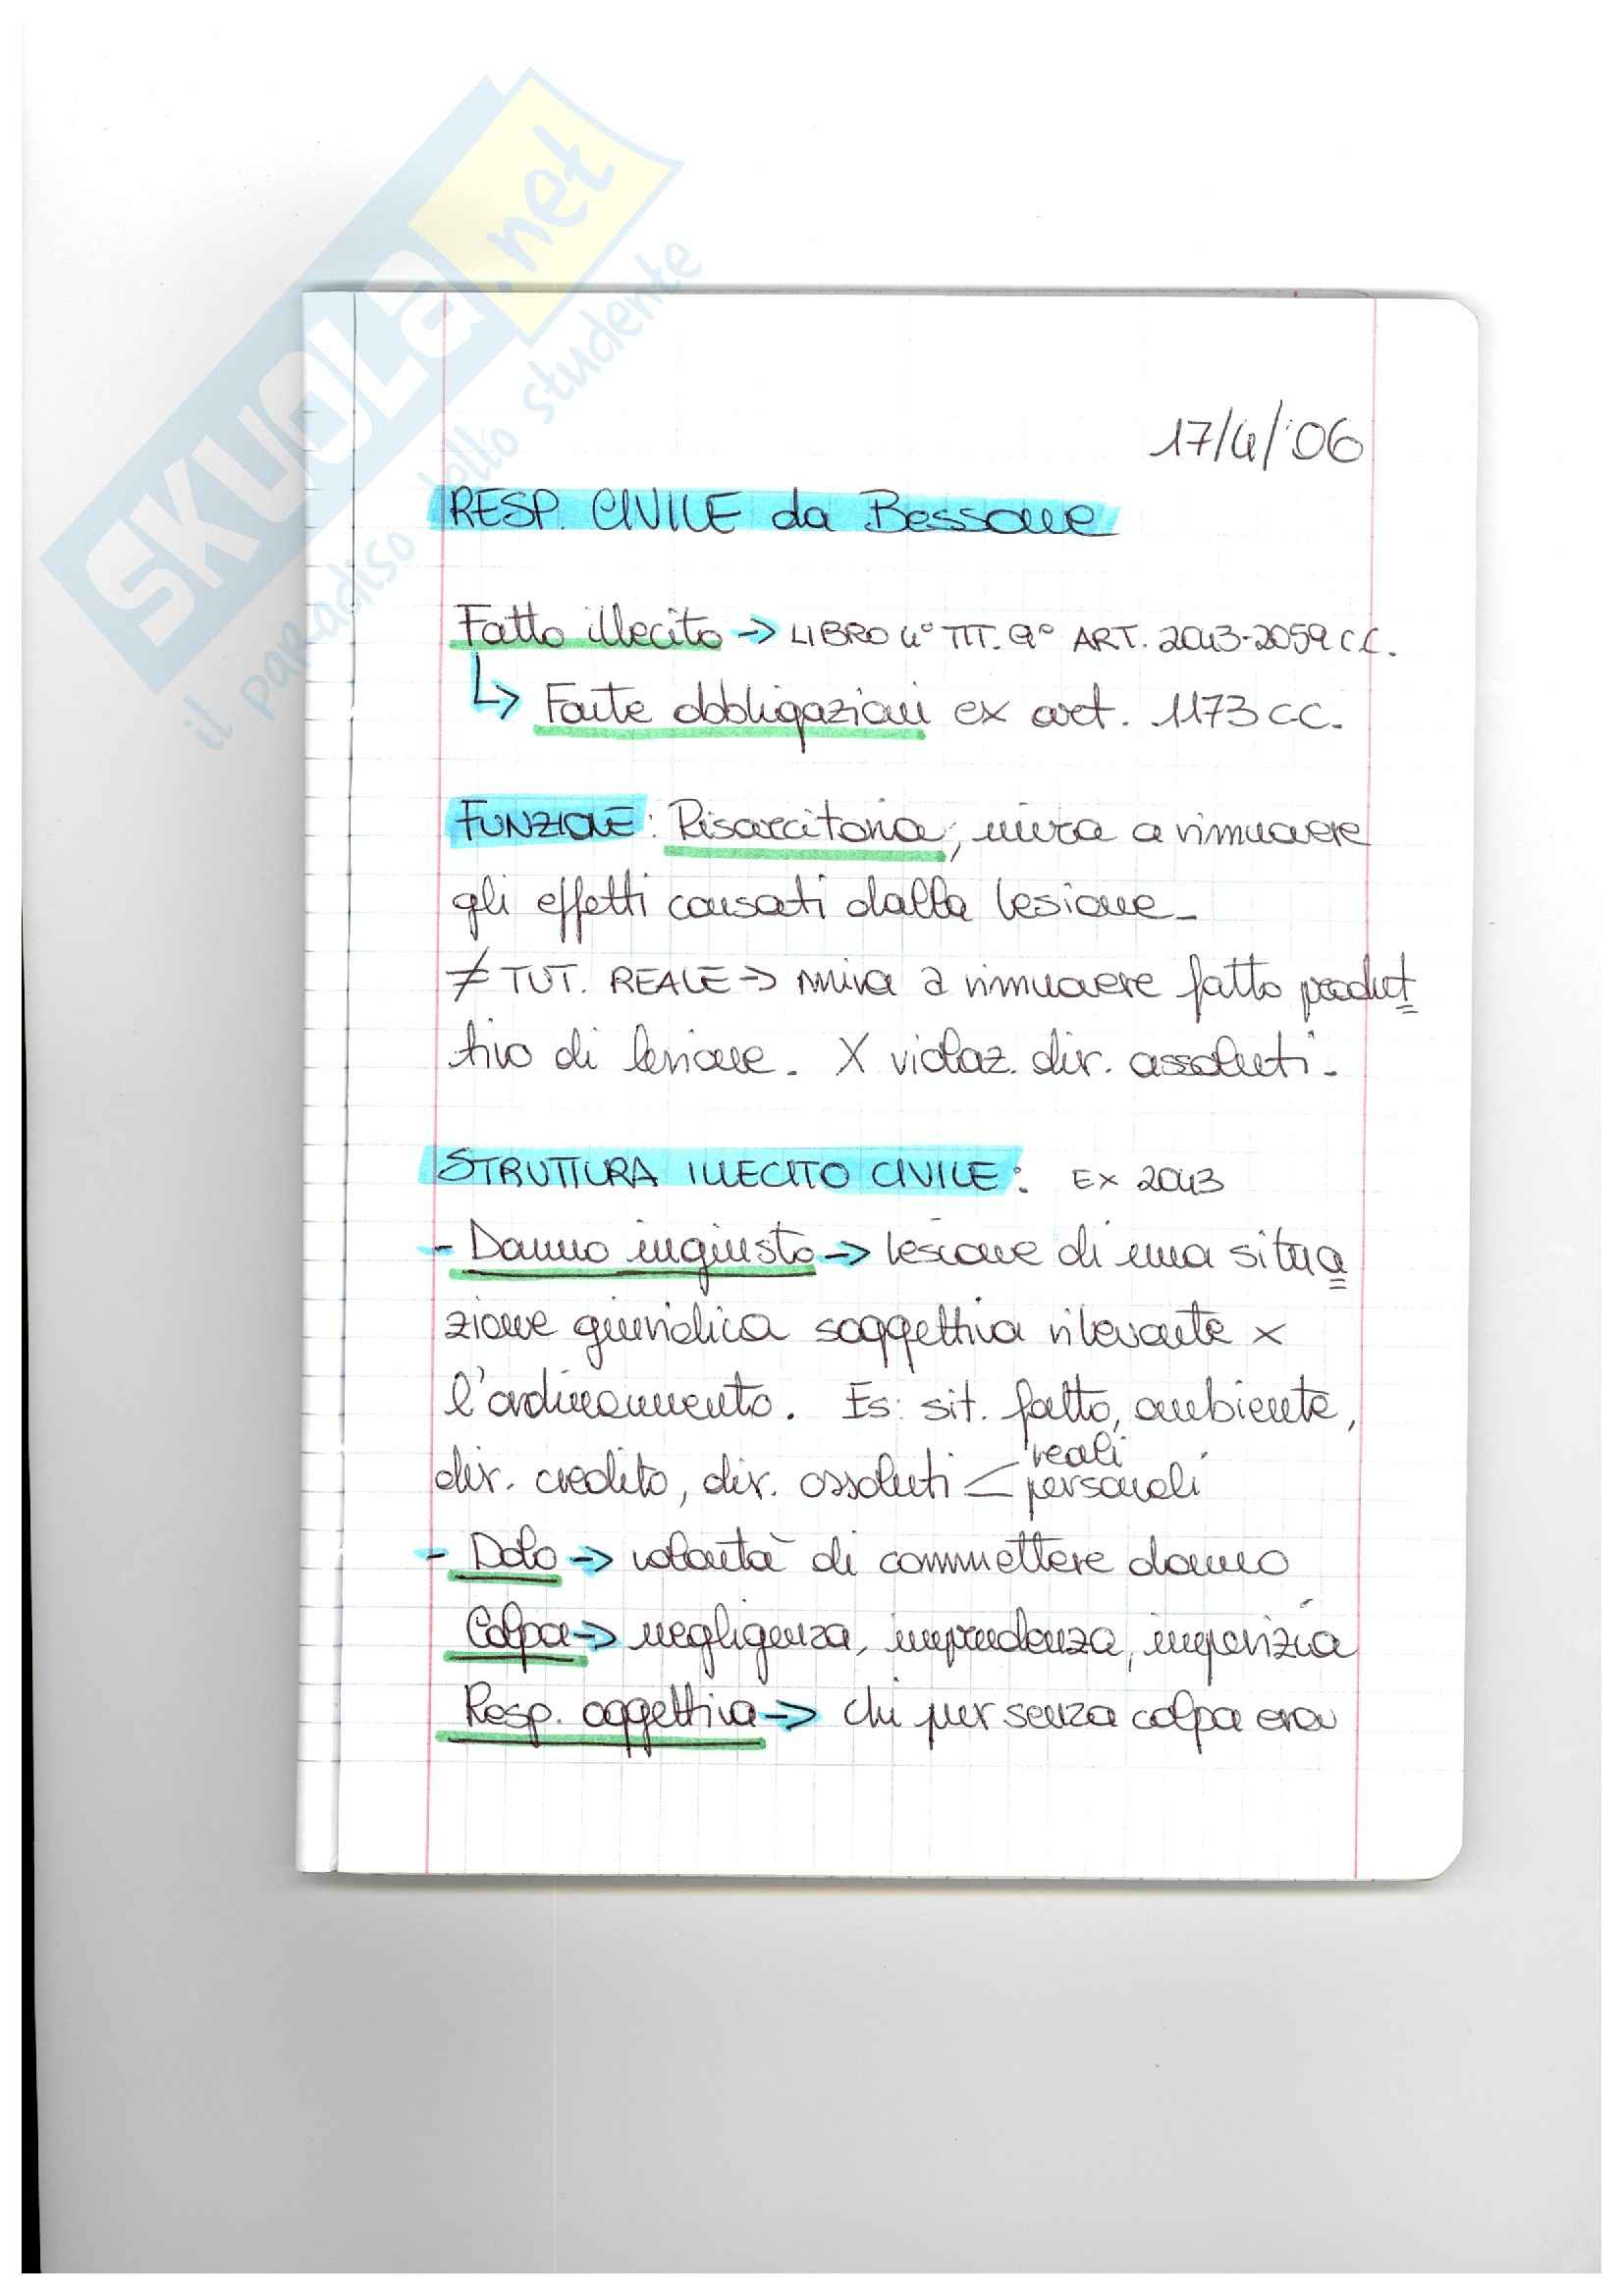 SKUOLA.net
il paradiso dello studente
17/4/'06
RESP. CIVILE da Bessone
Fatto illecito → LIBRO 4° TIT. 9° ART. 2043-2059 C.C.
↳ Fonte obbligazioni ex art. 1173 CC.
FUNZIONE: Risarcitoria, mira a rimuovere
gli effetti causati dalla lesione_
≠ TUT. REALE → mira a rimuovere fatto produt
tivo di lesione. X violaz. dir. assoluti.
STRUTTURA ILLECITO CIVILE: EX 2043
- Danno ingiusto → lesione di una situa
zione giuridica soggettiva rilevante x
l'ordinamento. Es: sit. fatto, ambiente,
reali
dir. credito, dir. assoluti < personali
- Dolo → volontà di commettere danno
Colpa → negligenza, imprudenza, imperizia
Resp. oggettiva → chi pur senza colpa era